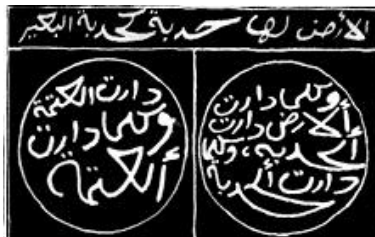 الأرض لها حدبة كحدبة البعير
وكلما دارت
ألارض دارت
ألحدبه، وكلما
دارت الحدبة
دارت العتمة
وكلما دارت
ألعتمة